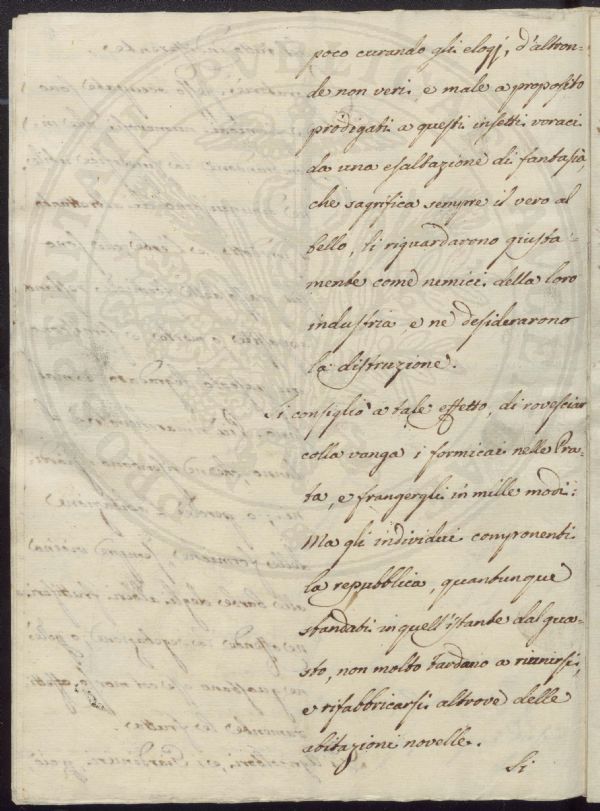 poco curando gli elogj, d'altron-
de non veri e male a proposito
prodigati a questi insetti voraci
da una esaltazione di fantasia,
che sagrifica sempre il vero al
bello, li riguardarono giusta-
mente come nemici della loro
industria e ne desiderarono
la distruzione.
Si consigliò a tale effetto, di rovesciar
colla vanga i formicai nelle Pra-
ta, e frangergli in mille modi:
Ma gli individui componenti
la repubblica, quantunque
sbandati in quell'istante dal gua-
sto, non molto tardano a riunirsi,
e rifabbricarsi altrove delle
abitazioni novelle.
Si